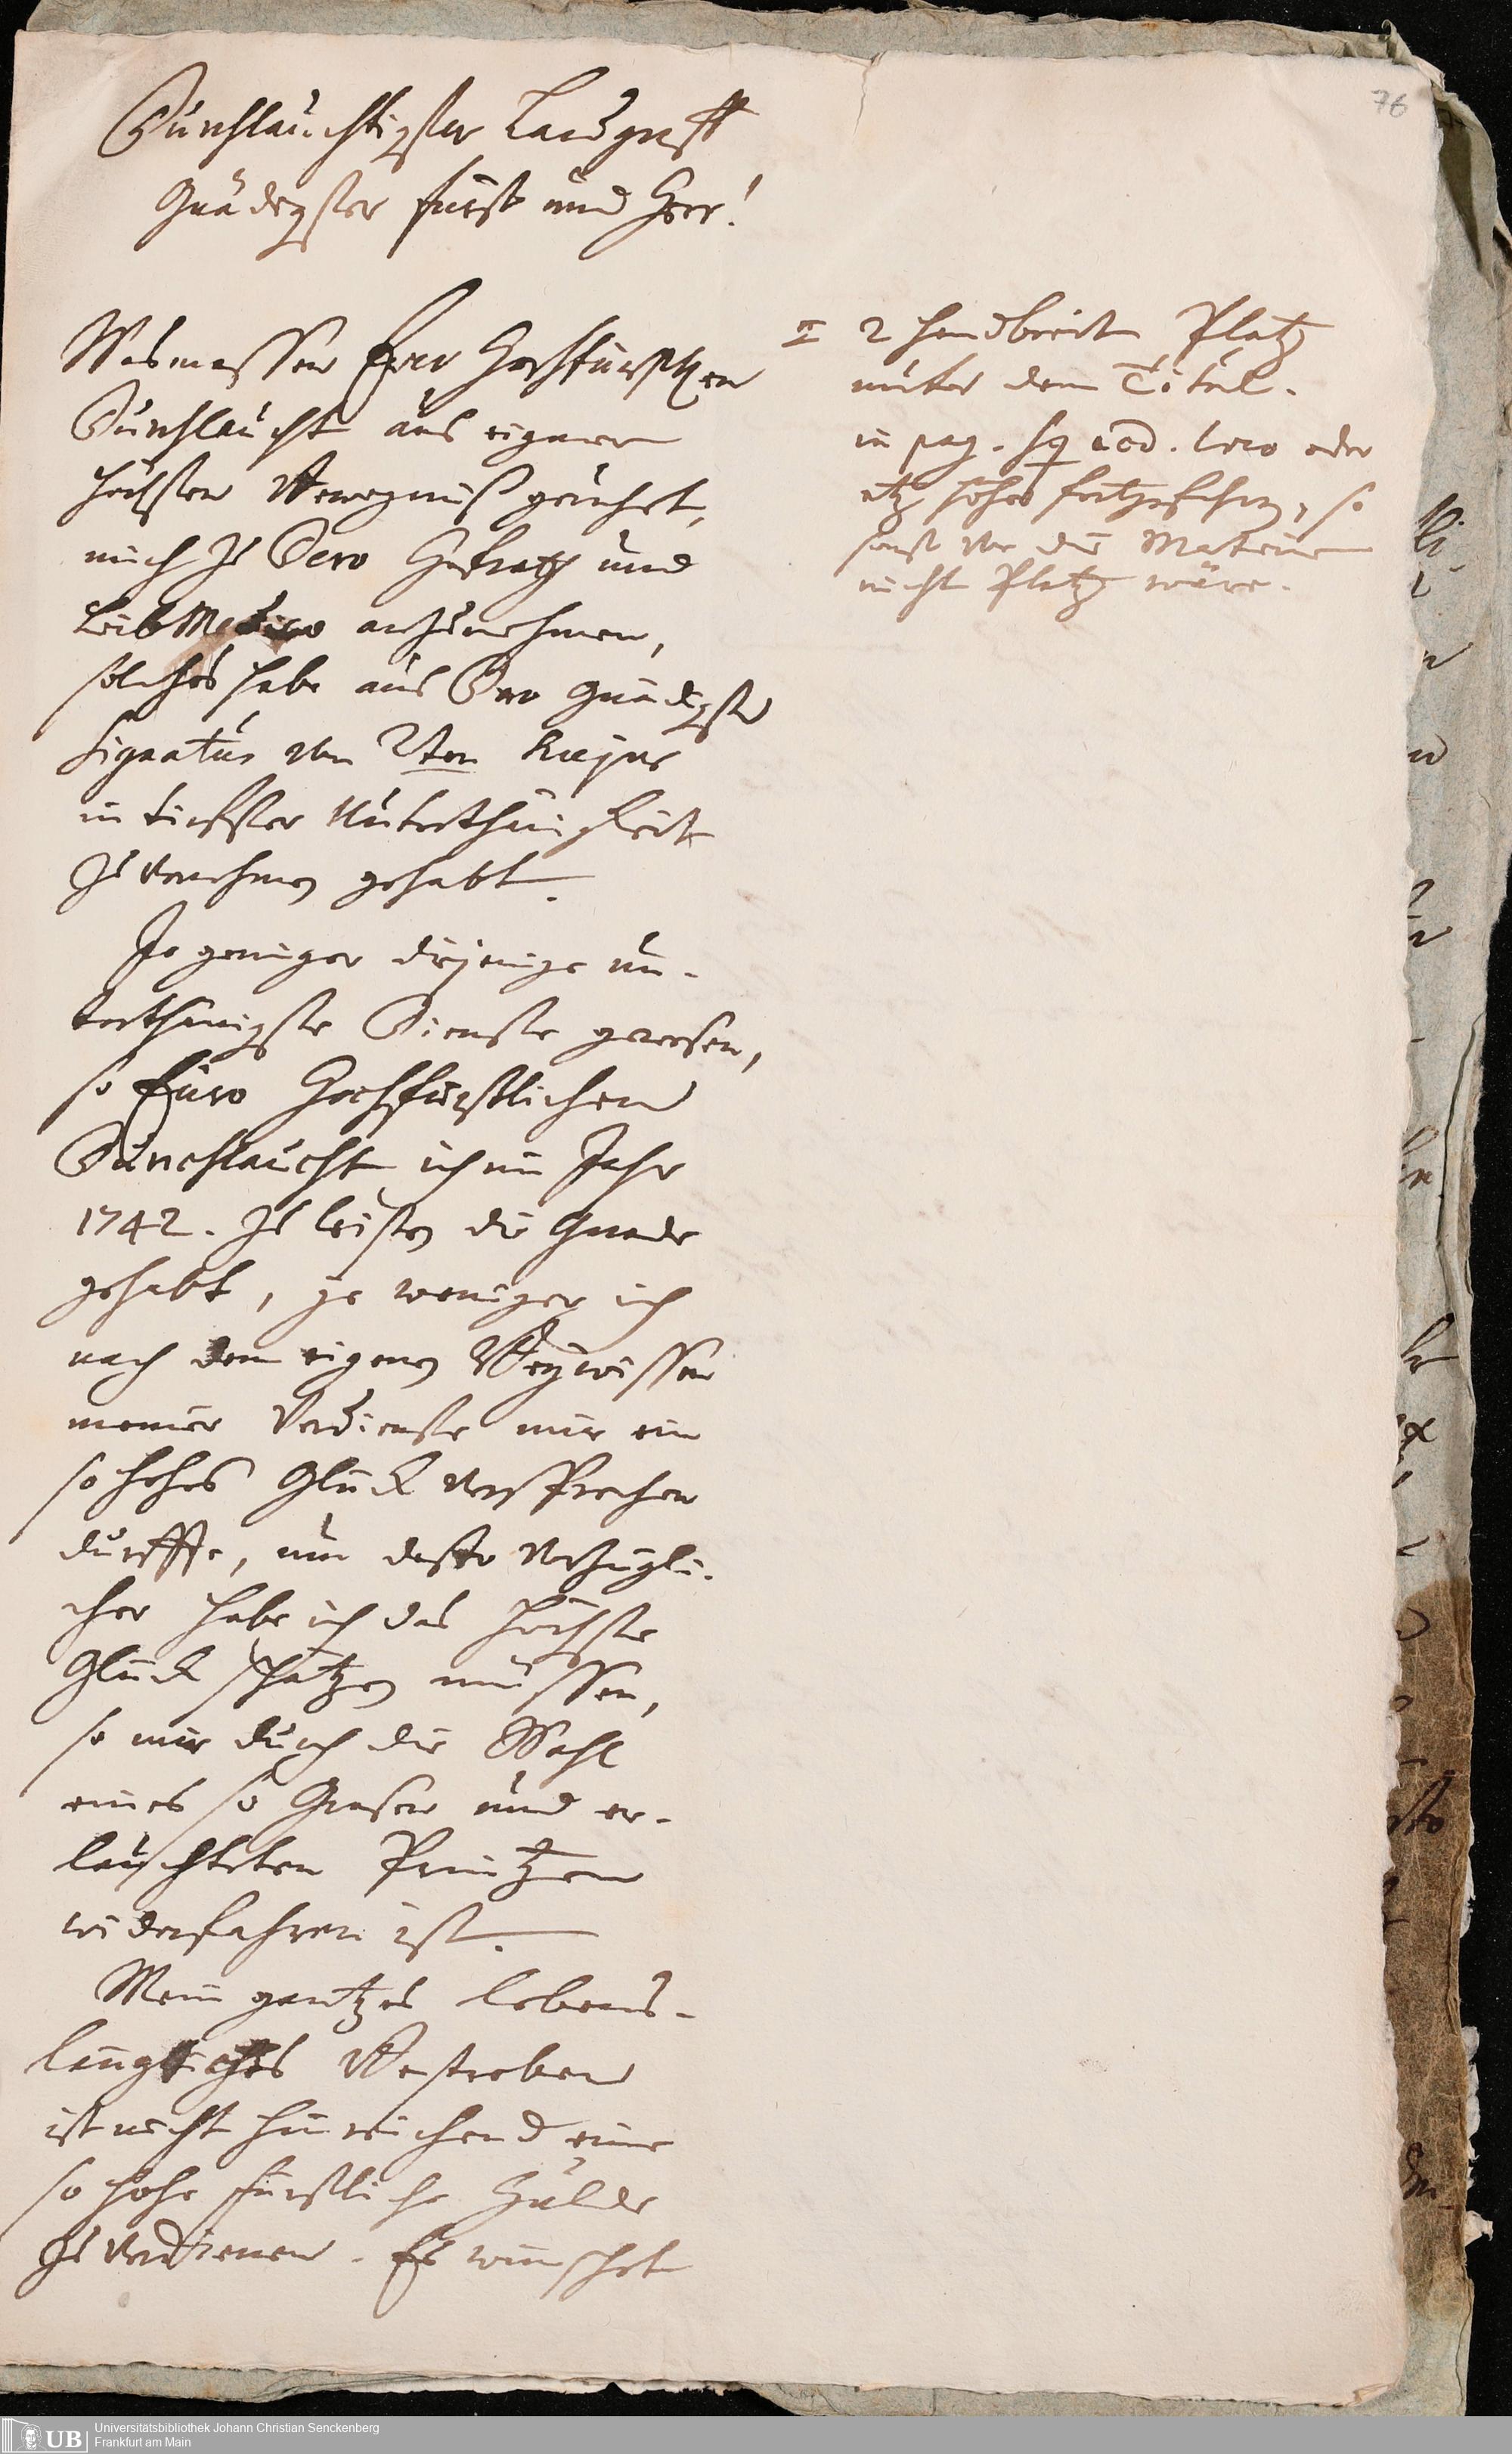 76
Durchlauchtigster Landgraff
Gnädigster Fürst und Herr!
Wasmassen Euer Hochfürstlen
Durchlaucht aus eigener
höchsten Bewegnuß geruhet,
mich zu Dero Hofrath und
Leib Medico anzunehmen,
solches habe aus Dero Gnädigste
Signatur vom 2ten hujus
in tiefster Unterthänigkeit
zu vernehmen gehabt.
Je geringer diejenige un-
terthänigste Dienste gewesen,
so Euro Hochfürstlichen
Durchlaucht ich im Jahr
1742. zu leisten die Gnade
gehabt, je weniger ich
nach dem eigenen Bewissen
meiner Verdienste mir ein
so hohes Glück versprechen
durffte, um desto vorzügli-
cher habe ich das höchste
Glück schätzen müssen,
so mir durch die Wahl
eines so Grosen und er-
läuchteten Printzen
widerfahren ist.
Mein gantzes lebens-
längliches Bestreben
ist nicht hinreichend eine
so hohe fürstliche Hulde
zu verdienen. Es wünschet
2 handbreit Platz
unter dem Titul.
in pag. sq eod. loco oder
etz höher fortgefahren, so
sonst vor die Materien
nicht Platz wäre.
UB
Universitätsbibliothek Johann Christian Senckenberg
Frankfurt am Main